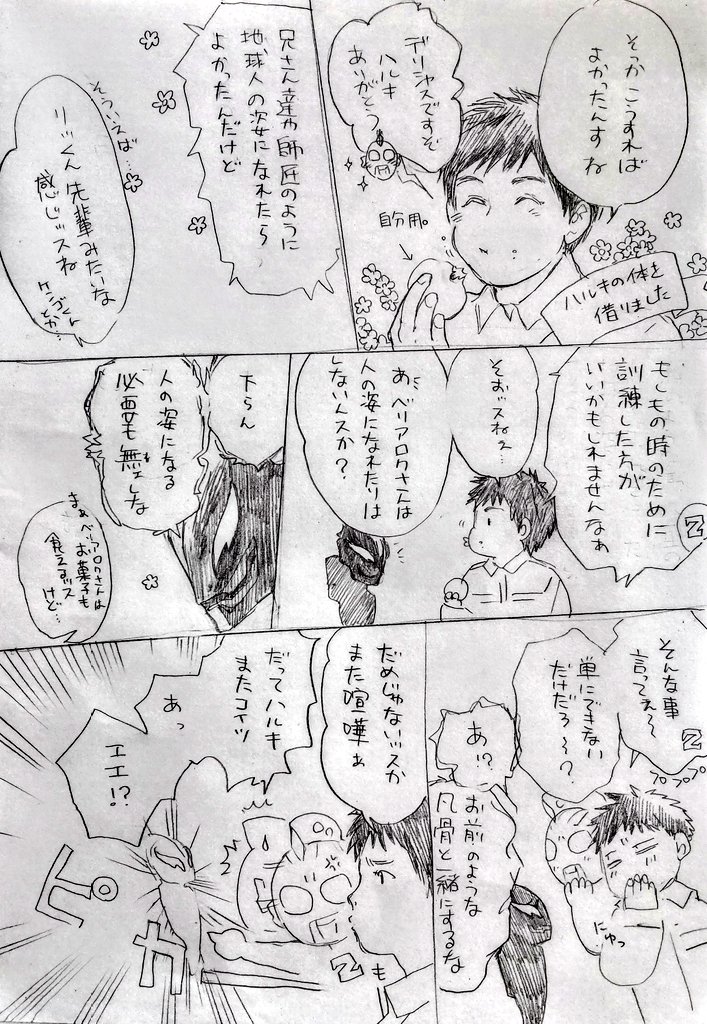 そっか こうすれば
よかったんすね
デリシャスですぞ
ハルキ
ありがとう
自分用。
ハルキの体を
借りました
兄さん達や師匠のように
地球人の姿になれたら
よかったんだけど
そういえば…
リッくん先輩みたいな
感じッスね
ケンゴくん
とか…
もしもの時のために
訓練した方が
いいかもしれませんなぁ
Z
そおッスねぇ…
あ、ベリアロクさんは
人の姿になれたりは
しないんスか?
下らん
人の姿になる
必要も無ぇしな
まぁベリアロクさんは
お菓子も
食えるッス
けど…
そんな事
言ってぇ〜
Z
単にできない
だけだろ〜?
ププププ
にゅっ
あ!?
お前のような
凡骨と一緒にするな
だめじゃないッスか
また喧嘩ぁ
も
Z
だってハルキ
またコイツ
あっ
エエ!?
ピカ